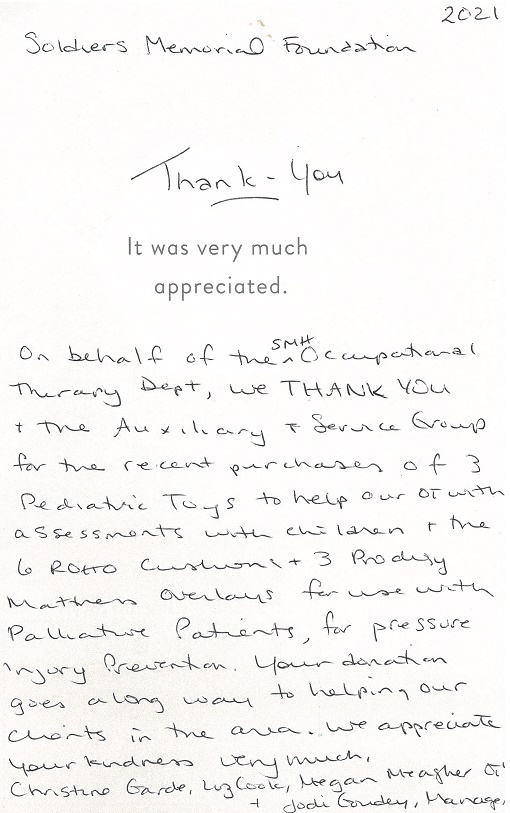 2021
Soldiers Memorial Foundation
Thank-You
It was very much
appreciated.
On behalf of the SMH Occupational
Therapy Dept, we THANK YOU
+ the Auxiliary + Service Group
for the recent purchases of 3
Pediatric Toys to help our OT with
assessments with children + the
6 ROHO Cushions + 3 Prodigy
Mattress overlays for use with
Palliative Patients, for pressure
injury Prevention. Your donation
goes a long way to helping our
clients in the area. We appreciate
your kindness very much,
Christine Garde, Liz Cook, Megan Meagher OT
+ Jodi Goudey, Manager